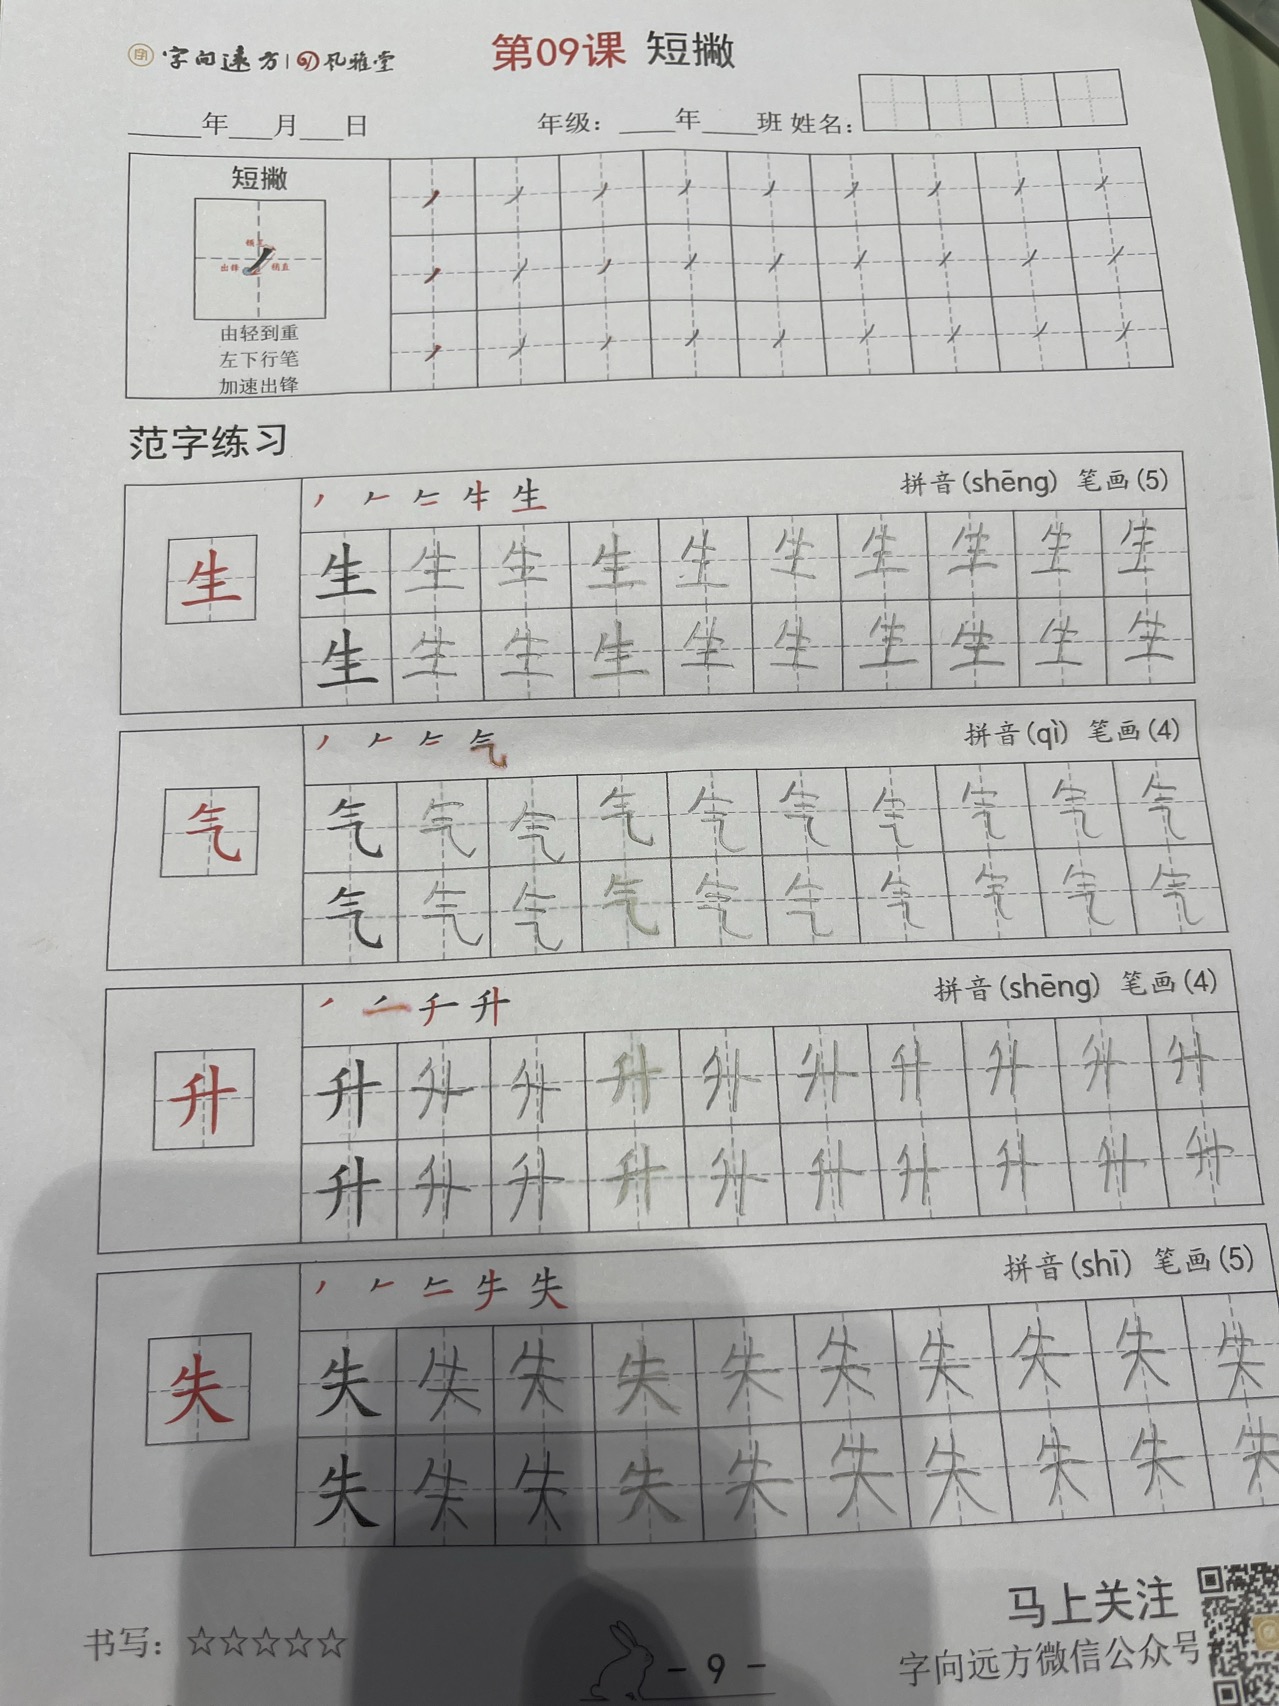 字向远方 | 风雅堂
第09课 短撇
____年___月___日 年级：____年____班 姓名：
短撇
由轻到重
左下行笔
加速出锋
范字练习
生 拼音(shēng) 笔画(5)
生 生 生 生 生 生 生 生 生 生
生 生 生 生 生 生 生 生 生 生
生
气 拼音(qì) 笔画(4)
气 气 气 气 气 气 气 气 气 气
气 气 气 气 气 气 气 气 气 气
气
升 拼音(shēng) 笔画(4)
升 升 升 升 升 升 升 升 升 升
升 升 升 升 升 升 升 升 升 升
升
失 拼音(shī) 笔画(5)
失 失 失 失 失 失 失 失 失 失
失 失 失 失 失 失 失 失 失 失
失
书写：☆☆☆☆☆
- 9 -
马上关注
字向远方微信公众号